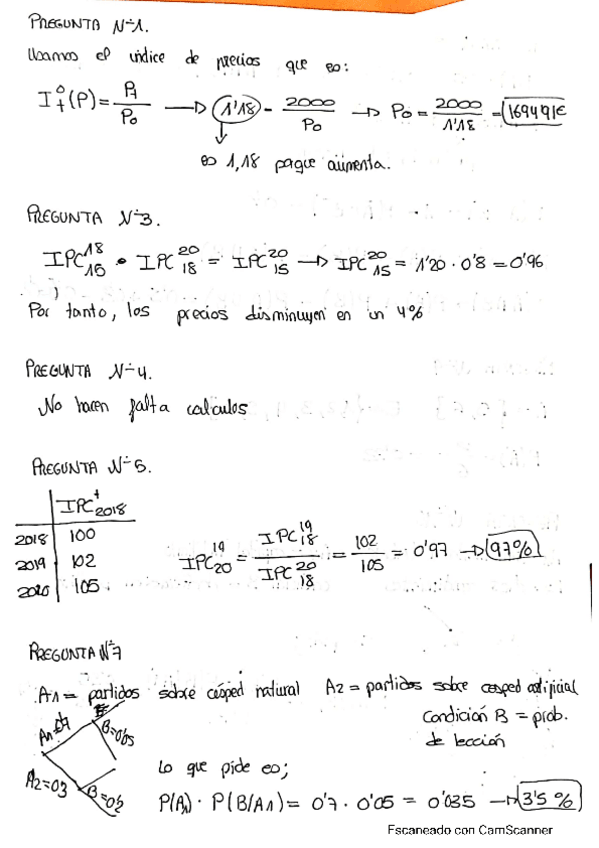 PREGUNTA Nº1.
Usamos el indice de precios que es:
I₊⁰(P) = P₁/P₀ → 1'18 - 2000/P₀ → P₀ = 2000/1'18 = 1694'91€
es 1,18 paque aumenta.
PREGUNTA Nº3.
IPC¹⁸₁₈ • IPC²⁰₁₈ = IPC²⁰₁₅ → IPC²⁰₁₅ = 1'20 · 0'8 = 0'96
Por tanto, los precios disminuyen en un 4%
PREGUNTA Nº4.
No hacen falta calculos
PREGUNTA Nº5.
IPCᵗ₂₀₁₈
2018 100
2019 102
2020 105
IPC¹⁹₂₀ = IPC¹⁹₁₈ / IPC²⁰₁₈ = 102/105 = 0'97 → 97%
PREGUNTA Nº7
A1 = partidos sobre césped natural A2 = partidos sobre cesped artificial
Condición B = prob. de lección
A1=0'7 B=0'05
A2=0'3 B=0'2
Lo que pide es;
P(A1) · P(B/A1) = 0'7 · 0'05 = 0'035 → 3'5 %
Escaneado con CamScanner